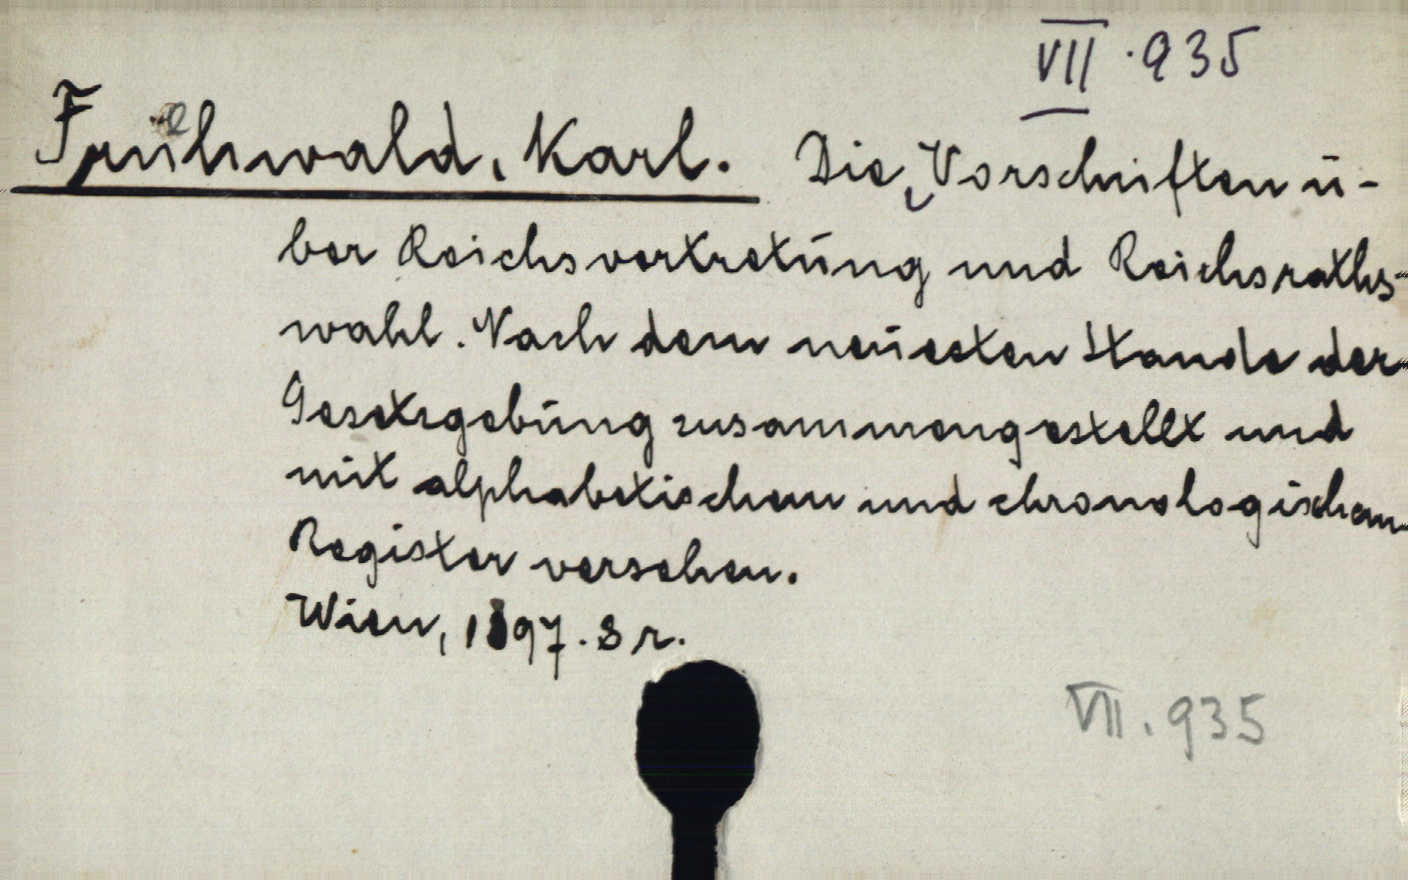 VII.935
Fruehwald, Karl. Die Vorschriften ü-
ber Reichsvertretung und Reichsraths-
wahl. Nach dem neuesten Stande der
Gesetzgebung zusammengestellt und
mit alphabetischem und chronologischem
Register versehen.
Wien, 1897. 8 r.
VII.935